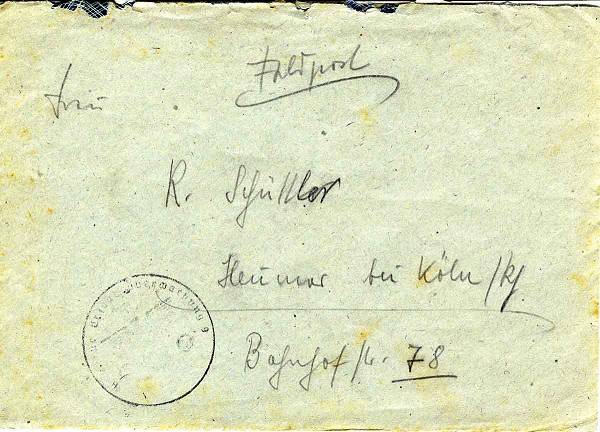 Feldpost
Frau
R. Schüller
Heumar bei Köln/Rh.
Bahnhofstr. 78